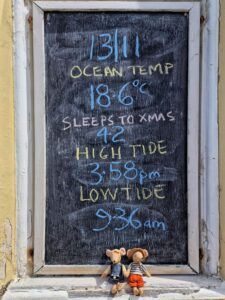 13/11
OCEAN TEMP
18.6°C
SLEEPS TO XMAS
42
HIGH TIDE
3:58pm
LOW TIDE
9:36am